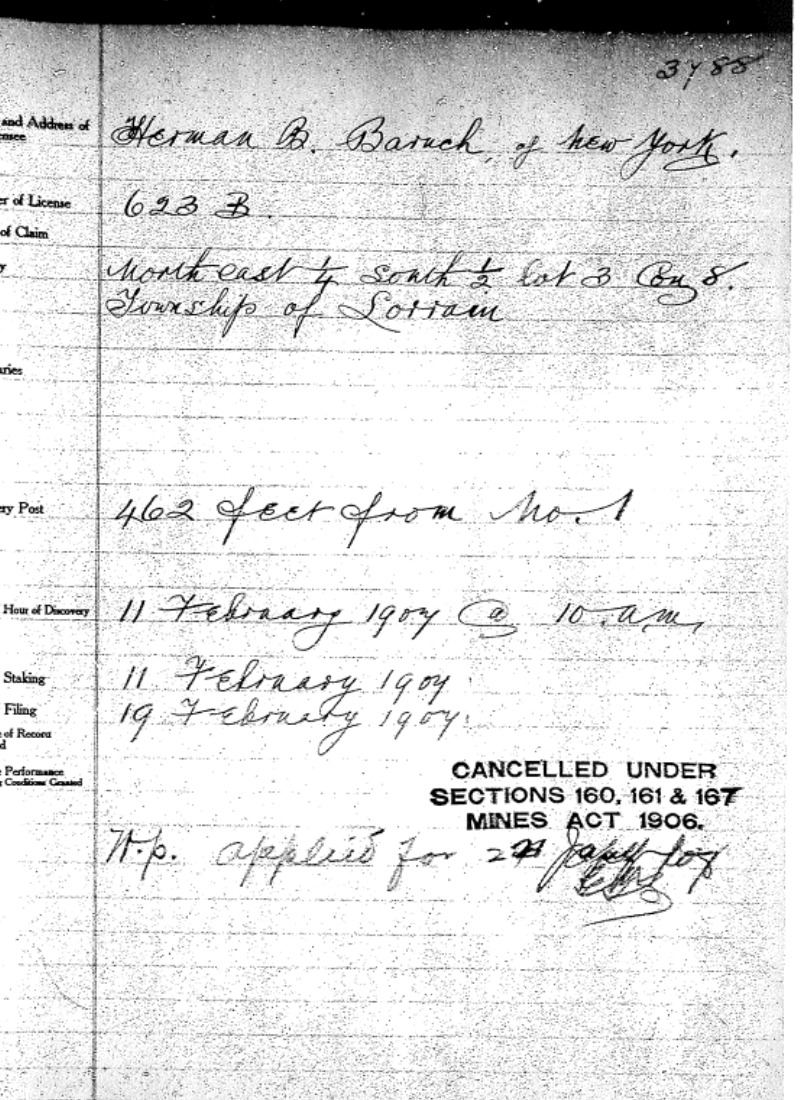 3788
and Address of
ensee
Herman B. Baruch, of New York.
er of License
623 B.
of Claim
y
North east 1/4 south 1/2 lot 3 Con 8.
Township of Lorrain
aries
ery Post
462 feet from No. 1
Hour of Discovery
11 February 1907 @ 10 a.m.
Staking
11 February 1907
Filing
19 February 1907.
e of Record
d
e Performance
g Conditions Granted
CANCELLED UNDER
SECTIONS 160, 161 & 167
MINES ACT 1906.
W.p. applied for